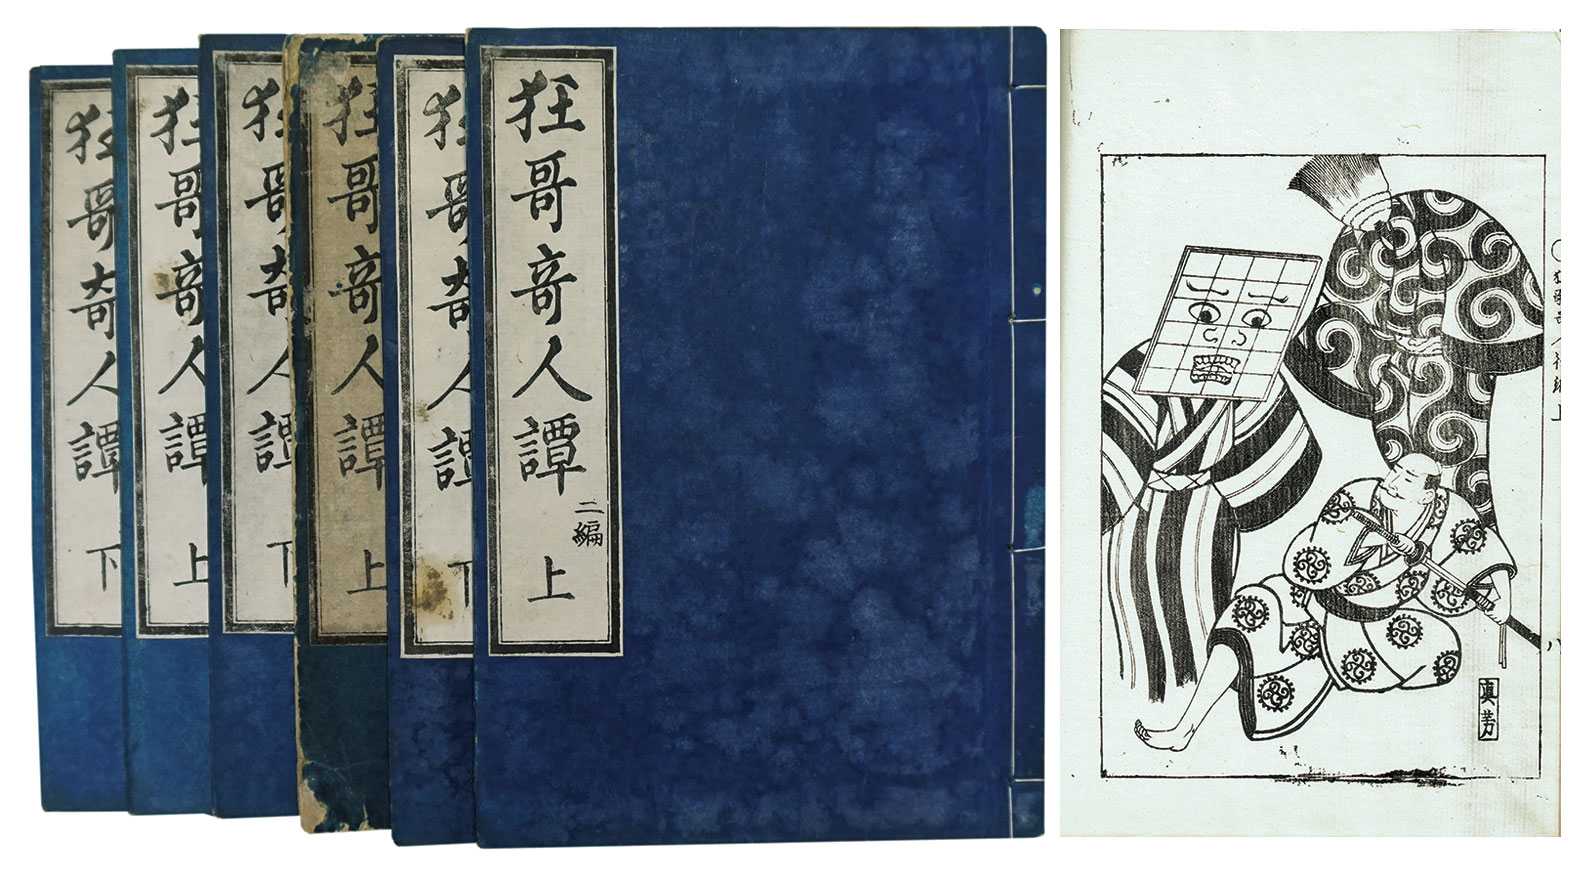 狂哥竒人譚 二編 上
狂哥奇人譚 下
狂哥竒人譚 上
狂哥奇人譚 下
狂哥竒人譚 上
狂哥奇人譚 下
八
真芳